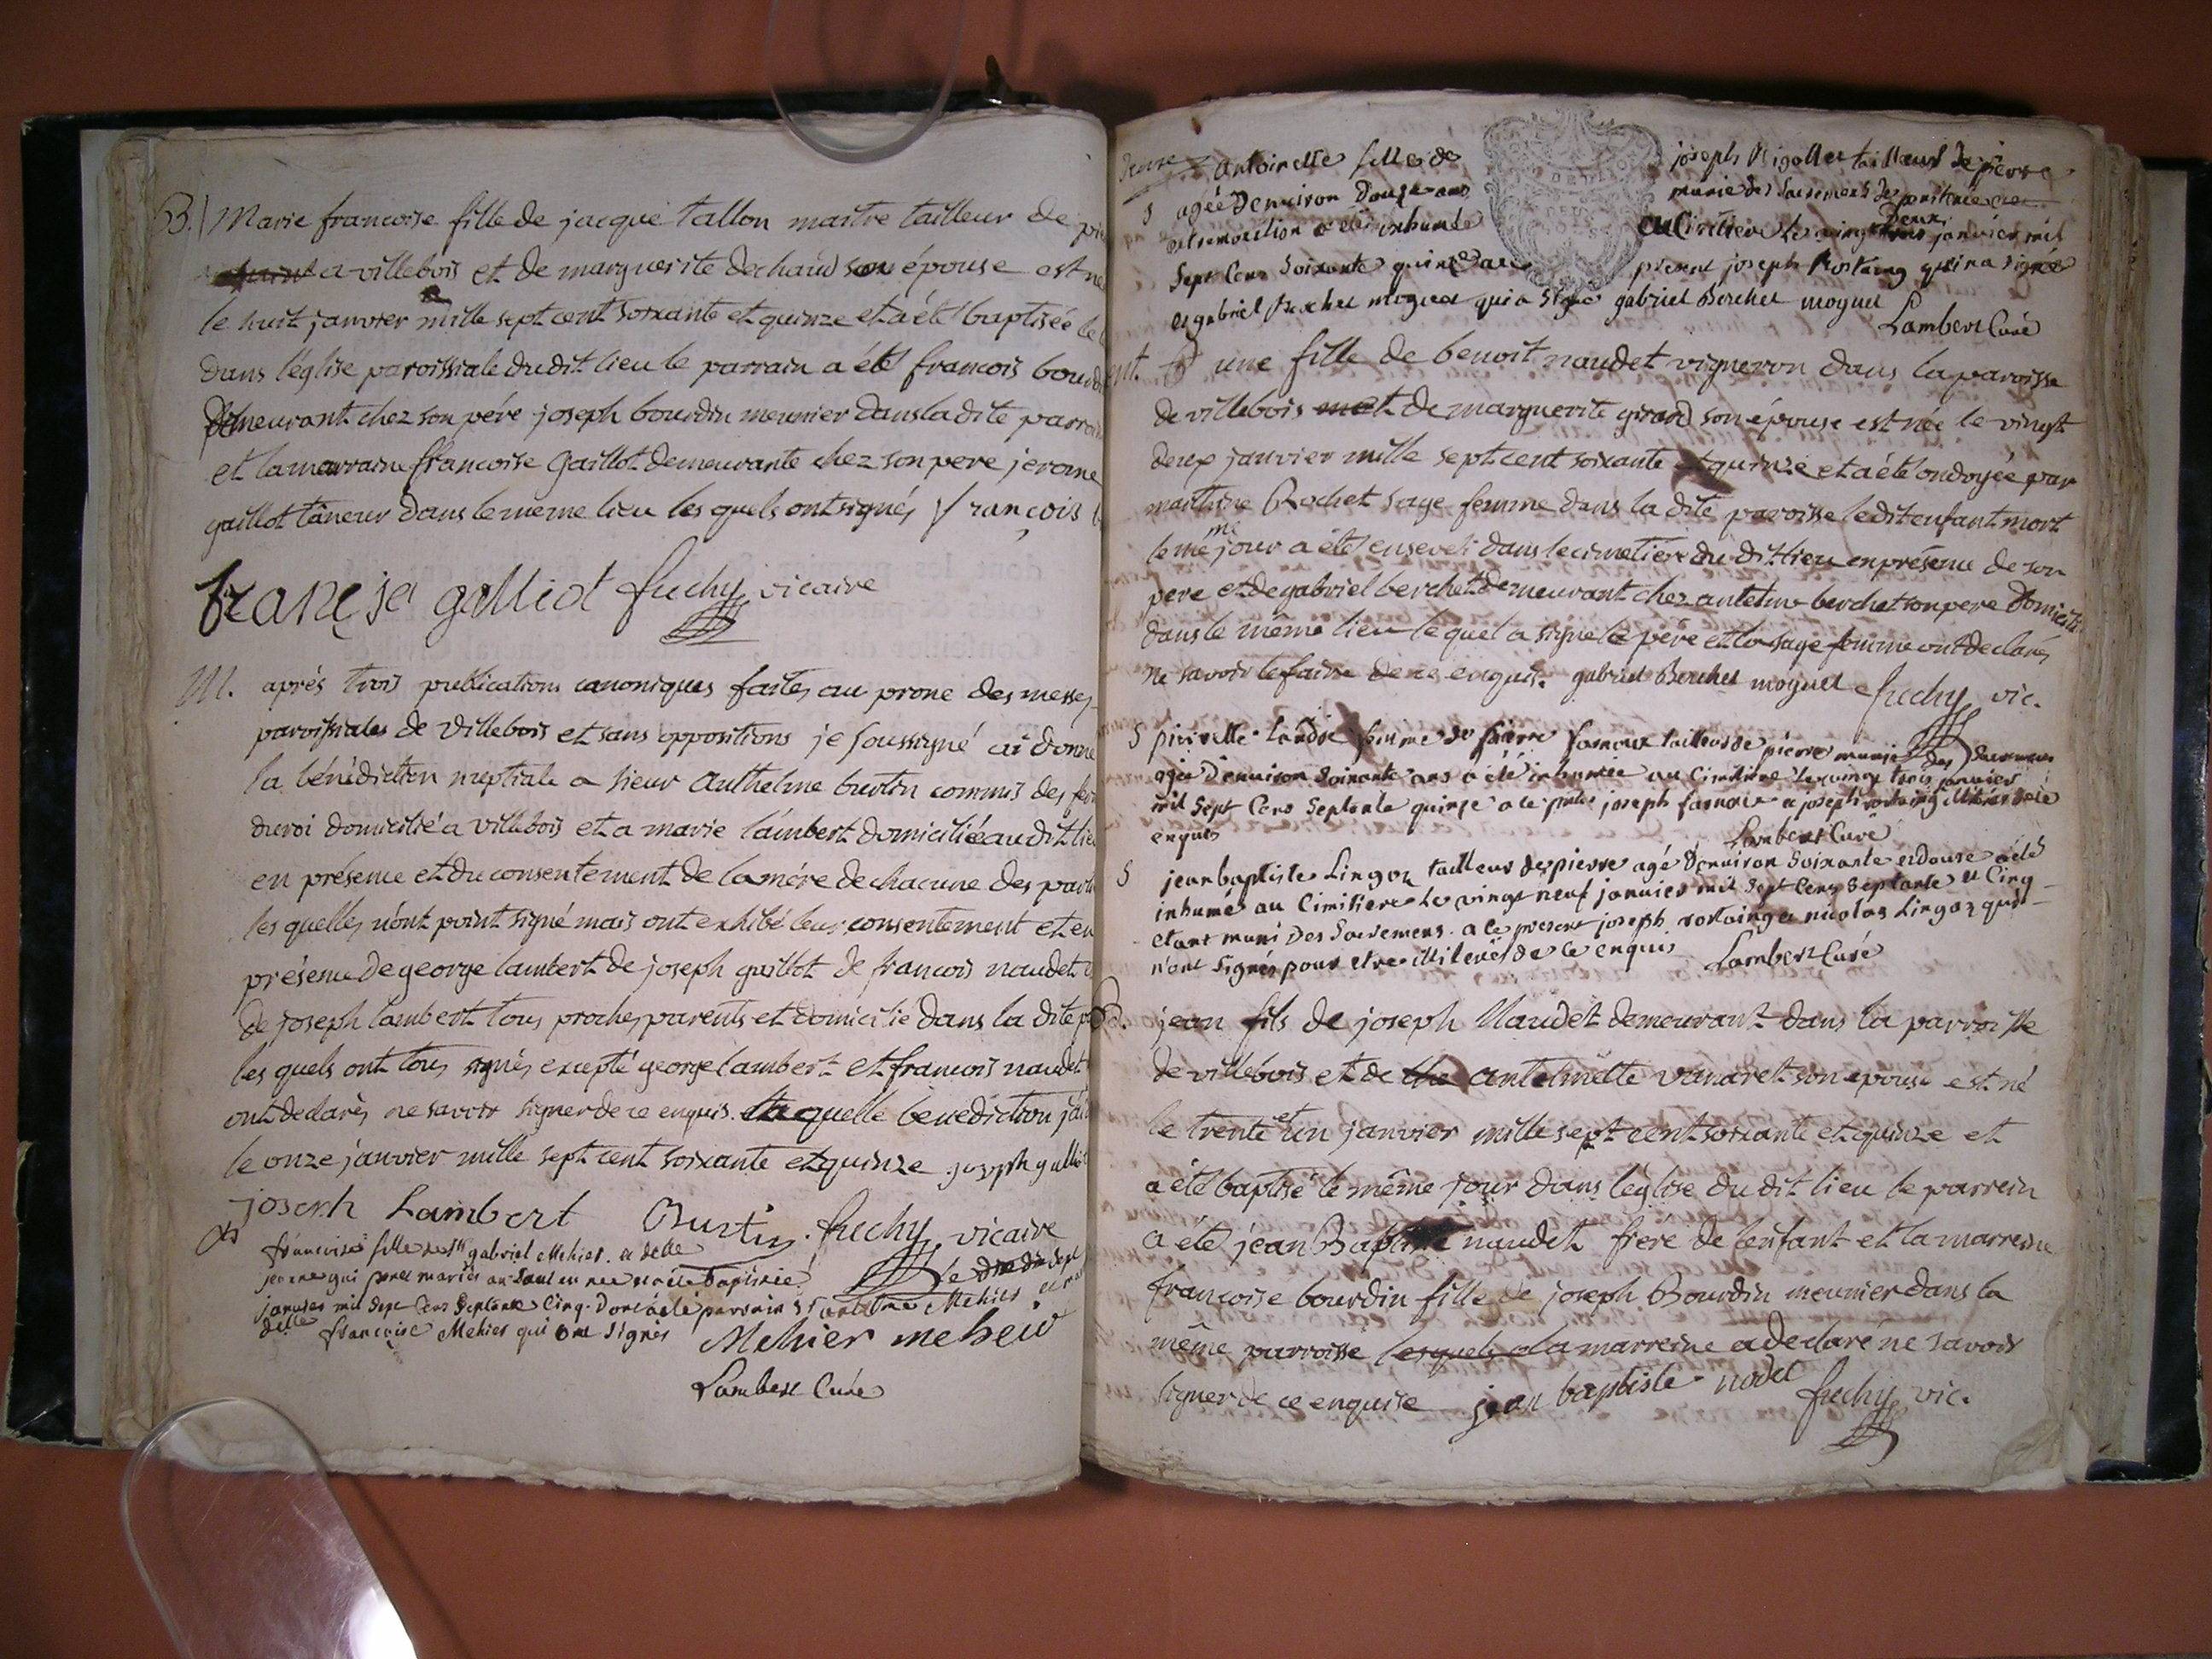 B. Marie francoise fille de jacque tallon maitre tailleur de
a villebois et de marguerite dechaud son épouse est né
le huit janvier mille sept cent soixante et quinze et a été baptisée le
dans l'église paroissiale du dit lieu le parrain a été francois
demeurant chez son pére joseph bourdin meunier dans la dite
et la marraine francoise Gaillot demeurante chez son pere jerome
gaillot tâneur dans le meme lieu les quels ont signés francois
galliot fuchy vicaire
M. aprés trois publications canoniques faites au prone des messes
paroissiales de villebois et sans oppositions je soussigné ai donné
la bénédiction nuptiale a sieur Anthelme burtin commis des
du roi domicilié a villebois et a marie lambert domiciliée au dit
en présence et du consentement de la mére de chacune des
les quelles n'ont point signé mais ont exhibé leur consentement et en
présence de george lambert de joseph guillot de francois naudet
de joseph lambert tous proches parents et domicilié dans la dite
les quels ont tous signés excepté george lambert et francois naudet
ont declarés ne savoir signer de ce enquis. la quelle bénédiction
le onze janvier mille sept cent soixante et quinze joseph
joseph Lambert Burtin fuchy vicaire
francoise fille de gabriel Mehier et delle
janvier mil sept cens septante cinq
delle francoise Mehier qui ont signés Mehier
Lambert Curé
Antoinette fille de joseph Rigollet tailleur de pierre
S agée denviron douze ans munie des sacremens de penitence
extremonction a été inhumée au Cimitiere le vingt deux janvier mil
sept cens soixante quinze present joseph Rostaing qui n'a signé
et gabriel Berchet moguet qui a signé gabriel Berchet moguet
Lambert Curé
une fille de benoit naudet vigneron dans la paroisse
de villebois et de marguerite girard son épouse est née le vingt
deux janvier mille sept cent soixante et quinze et a été ondoyée par
Rochet sage femme dans la dite paroisse le dit enfant mort
le même jour a été enseveli dans le cimetiére du dit lieu en présence de son
pere et de gabriel berchet demeurant chez antelme berchet son pere domicilié
dans le même lieu le quel a signé le pere et la sage femme ont declarés
ne savoir le faire de ce enquis. gabriel Berchet moguet fuchy vic.
S pierrette femme de pierre tailleur de pierre munie des sacremens
agée d'environ soixante ans a été inhumée au Cimitiere le vingt trois janvier
mil sept cens septante quinze a ce joseph et joseph rostaing illiterés de ce
enquis Lambert Curé
S jean baptiste Lingoz tailleur de pierre agé d'environ soixante et douze a été
inhumé au Cimitiere le vingt neuf janvier mil sept cens septante et cinq
etant muni des sacremens. a ce present joseph rostaing et nicolas Lingoz qui
n'ont signés pour etre illiterés de ce enquis Lambert Curé
jean fils de joseph Naudet demeurant dans la parroisse
de villebois et de antelmette vanaret son epouse est né
le trente et un janvier mille sept cent soixante et quinze et
a été baptisé le même jour dans l'église du dit lieu le parrein
a été jean Baptiste naudet frére de l'enfant et la marreine
françoise bourdin fille de joseph Bourdin meunier dans la
même parroisse lesquels la marreine a declaré ne savoir
signer de ce enquise jean baptiste nodet fuchy vic.